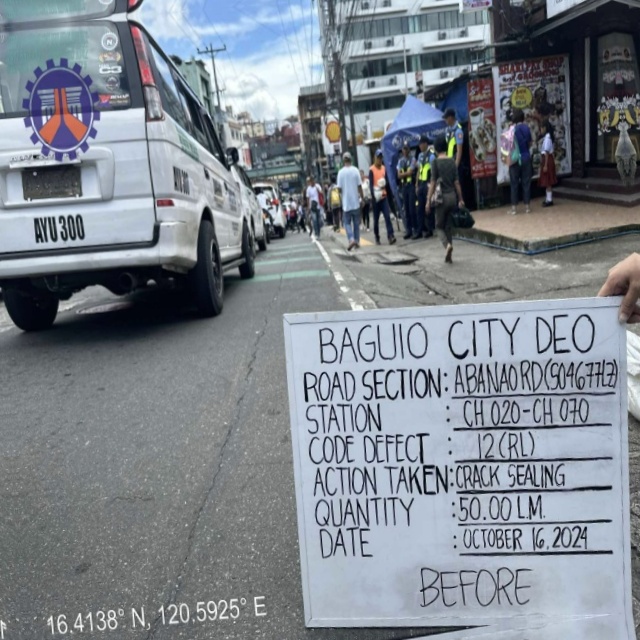 AYU 300
BAGUIO CITY DEO
ROAD SECTION: ABANAO RD(S04677LZ)
STATION : CH 020-CH 070
CODE DEFECT : 12(RL)
ACTION TAKEN: CRACK SEALING
QUANTITY : 50.00 L.M.
DATE : OCTOBER 16, 2024
BEFORE
16.4138° N, 120.5925° E